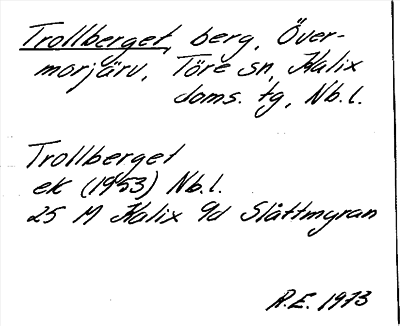 Trollberget, berg, Över-
morjärv, Töre sn, Kalix
doms. tg, Nb.l.
Trollberget
ek (1953) Nb.l.
25 M Kalix 9d Slåttmyran
R.E. 1973